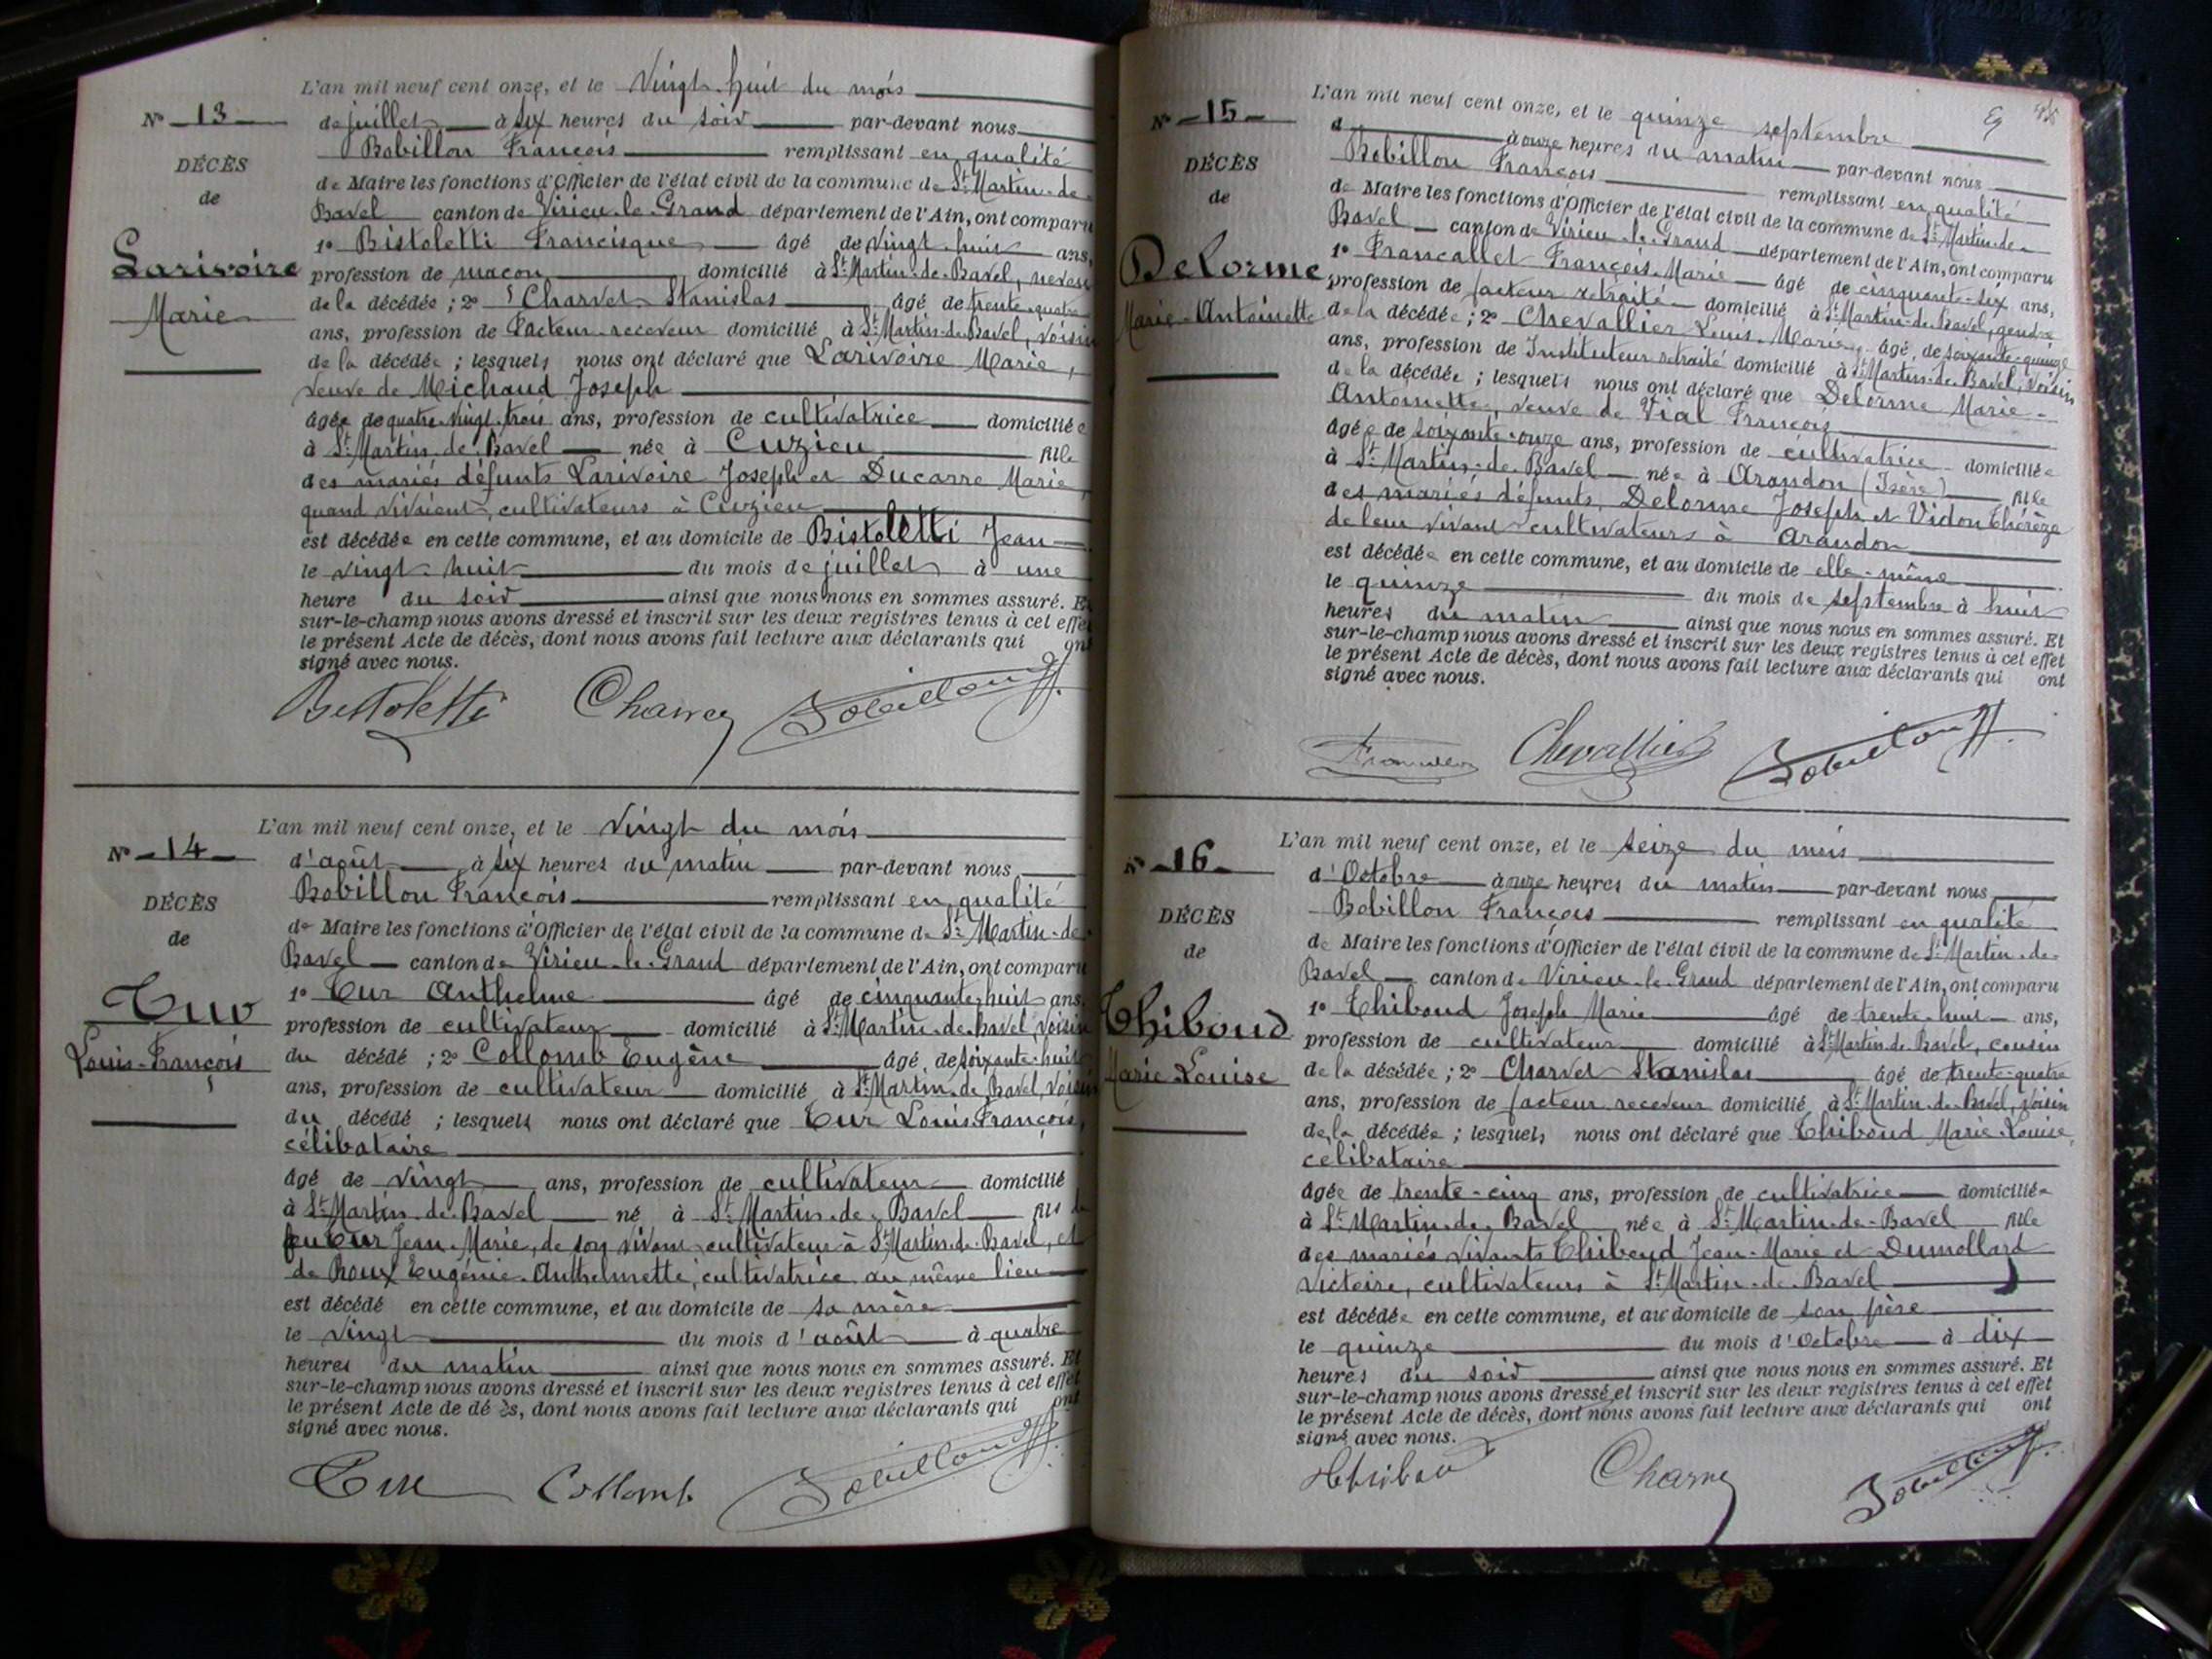 L'an mil neuf cent onze, et le vingt-huit du mois
N° 13
de juillet à six heures du soir par-devant nous
Bobillon François remplissant en qualité
DÉCÈS
de Maire les fonctions d'Officier de l'état civil de la commune de St Martin-de-
de
Bavel canton de Virieu-le-Grand département de l'Ain, ont comparu
1° Bistoletti Francisque âgé de vingt-huit ans,
Larivoire
profession de maçon domicilié à St Martin-de-Bavel, neveu
Marie
de la décédée ; 2° Charvet Stanislas âgé de trente-quatre
ans, profession de facteur-receveur domicilié à St Martin-de-Bavel, voisin
de la décédée ; lesquels nous ont déclaré que Larivoire Marie,
veuve de Michaud Joseph
âgée de quatre-vingt-trois ans, profession de cultivatrice domiciliée
à St Martin-de-Bavel née à Cuzieu fille
des mariés défunts Larivoire Joseph et Ducarre Marie,
quand vivaient, cultivateurs à Cuzieu
est décédée en cette commune, et au domicile de Bistoletti Jean
le vingt-huit du mois de juillet à une
heure du soir ainsi que nous nous en sommes assuré. Et
sur-le-champ nous avons dressé et inscrit sur les deux registres tenus à cet effet
le présent Acte de décès, dont nous avons fait lecture aux déclarants qui ont
signé avec nous.
Bistoletti Charvet Bobillon
L'an mil neuf cent onze, et le vingt du mois
N° 14
d'août à six heures du matin par-devant nous
Bobillon François remplissant en qualité
DÉCÈS
de Maire les fonctions d'Officier de l'état civil de la commune de St Martin-de-
de
Bavel canton de Virieu-le-Grand département de l'Ain, ont comparu
1° Cur Anthelme âgé de cinquante-huit ans,
Cur
profession de cultivateur domicilié à St Martin-de-Bavel, voisin
Louis-François
du décédé ; 2° Collomb Eugène âgé de soixante-huit
ans, profession de cultivateur domicilié à St Martin-de-Bavel, voisin
du décédé ; lesquels nous ont déclaré que Cur Louis-François,
célibataire
âgé de vingt ans, profession de cultivateur domicilié
à St Martin-de-Bavel né à St Martin-de-Bavel fils de
feu Cur Jean-Marie, de son vivant cultivateur à St Martin-de-Bavel, et
de Roux Eugénie-Anthelmette, cultivatrice au même lieu
est décédé en cette commune, et au domicile de sa mère
le vingt du mois d'août à quatre
heures du matin ainsi que nous nous en sommes assuré. Et
sur-le-champ nous avons dressé et inscrit sur les deux registres tenus à cet effet
le présent Acte de dé ès, dont nous avons fait lecture aux déclarants qui ont
signé avec nous.
Cur Collomb Bobillon
L'an mil neuf cent onze, et le quinze septembre
N° 15
d à onze heures du matin par-devant nous
Bobillon François remplissant en qualité
DÉCÈS
de Maire les fonctions d'Officier de l'état civil de la commune de St Martin-de-
de
Bavel canton de Virieu-le-Grand département de l'Ain, ont comparu
1° Francallet François-Marie âgé de cinquante-six ans,
Delorme
profession de facteur retraité domicilié à St Martin-de-Bavel, gendre
Marie-Antoinette
de la décédée ; 2° Chevallier Louis-Marie, âgé de soixante-quinze
ans, profession de Instituteur retraité domicilié à St Martin-de-Bavel, voisin
de la décédée ; lesquels nous ont déclaré que Delorme Marie-
Antoinette, veuve de Vial François
âgée de soixante-onze ans, profession de cultivatrice domiciliée
à St Martin-de-Bavel née à Arandon (Isère) fille
des mariés défunts, Delorme Joseph et Vidon Thérèze
de leur vivant cultivateurs à Arandon
est décédée en cette commune, et au domicile de elle-même
le quinze du mois de septembre à huit
heures du matin ainsi que nous nous en sommes assuré. Et
sur-le-champ nous avons dressé et inscrit sur les deux registres tenus à cet effet
le présent Acte de décès, dont nous avons fait lecture aux déclarants qui ont
signé avec nous.
Chevallier Bobillon
L'an mil neuf cent onze, et le seize du mois
N° 16
d'Octobre à onze heures du matin par-devant nous
Bobillon François remplissant en qualité
DÉCÈS
de Maire les fonctions d'Officier de l'état civil de la commune de St Martin-de-
de
Bavel canton de Virieu-le-Grand département de l'Ain, ont comparu
1° Thiboud Joseph Marie âgé de trente-huit ans,
Thiboud
profession de cultivateur domicilié à St Martin-de-Bavel, cousin
Marie Louise
de la décédée ; 2° Charvet Stanislas âgé de trente-quatre
ans, profession de facteur receveur domicilié à St Martin-de-Bavel, voisin
de la décédée ; lesquels nous ont déclaré que Thiboud Marie-Louise,
célibataire
âgée de trente-cinq ans, profession de cultivatrice domiciliée
à St Martin-de-Bavel née à St Martin-de-Bavel fille
des mariés vivants Thiboud Jean-Marie et Dumollard
Victoire, cultivateurs à St Martin-de-Bavel
est décédée en cette commune, et au domicile de son père
le quinze du mois d'Octobre à dix
heures du soir ainsi que nous nous en sommes assuré. Et
sur-le-champ nous avons dressé et inscrit sur les deux registres tenus à cet effet
le présent Acte de décès, dont nous avons fait lecture aux déclarants qui ont
signé avec nous.
Charvet Bobillon